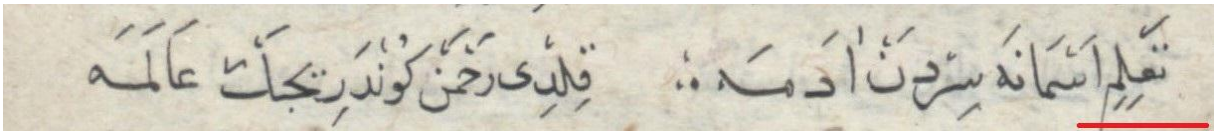 تَعْلِيمِ اَسْمَانَه سِرْدَنْ اٰدَمَه ∴ قِلْدِى رَحْمَنْ كُونْدَرِيجَكْ عَالَمَه